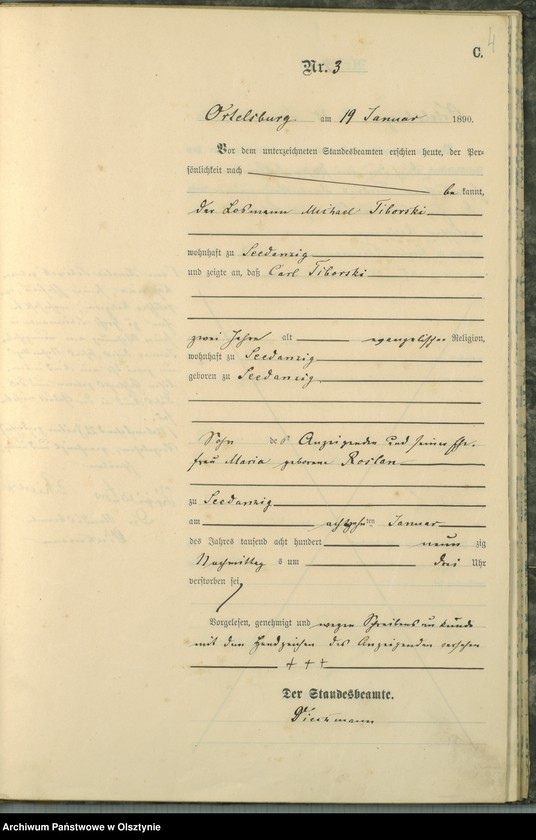 4
C.
Nr. 3
Ortelsburg am 19 Januar 1890.
Vor dem unterzeichneten Standesbeamten erschien heute, der Per-
sönlichkeit nach
be kannt,
der Losmann Michael Tiborski
wohnhaft zu Seedanzig
und zeigte an, daß Carl Tiborski
zwei Jahre alt evangelischer Religion,
wohnhaft zu Seedanzig
geboren zu Seedanzig
Sohn des Anzeigenden und seiner Ehe-
frau Maria geborene Roslan
zu Seedanzig
am achtzehnten Januar
des Jahres tausend acht hundert neun zig
Nachmittag s um drei Uhr
verstorben sei
Vorgelesen, genehmigt und wegen Schreibensunkunde
mit dem Handzeichen des Anzeigenden versehen
+ + +
Der Standesbeamte.
Dieckmann
Archiwum Państwowe w Olsztynie